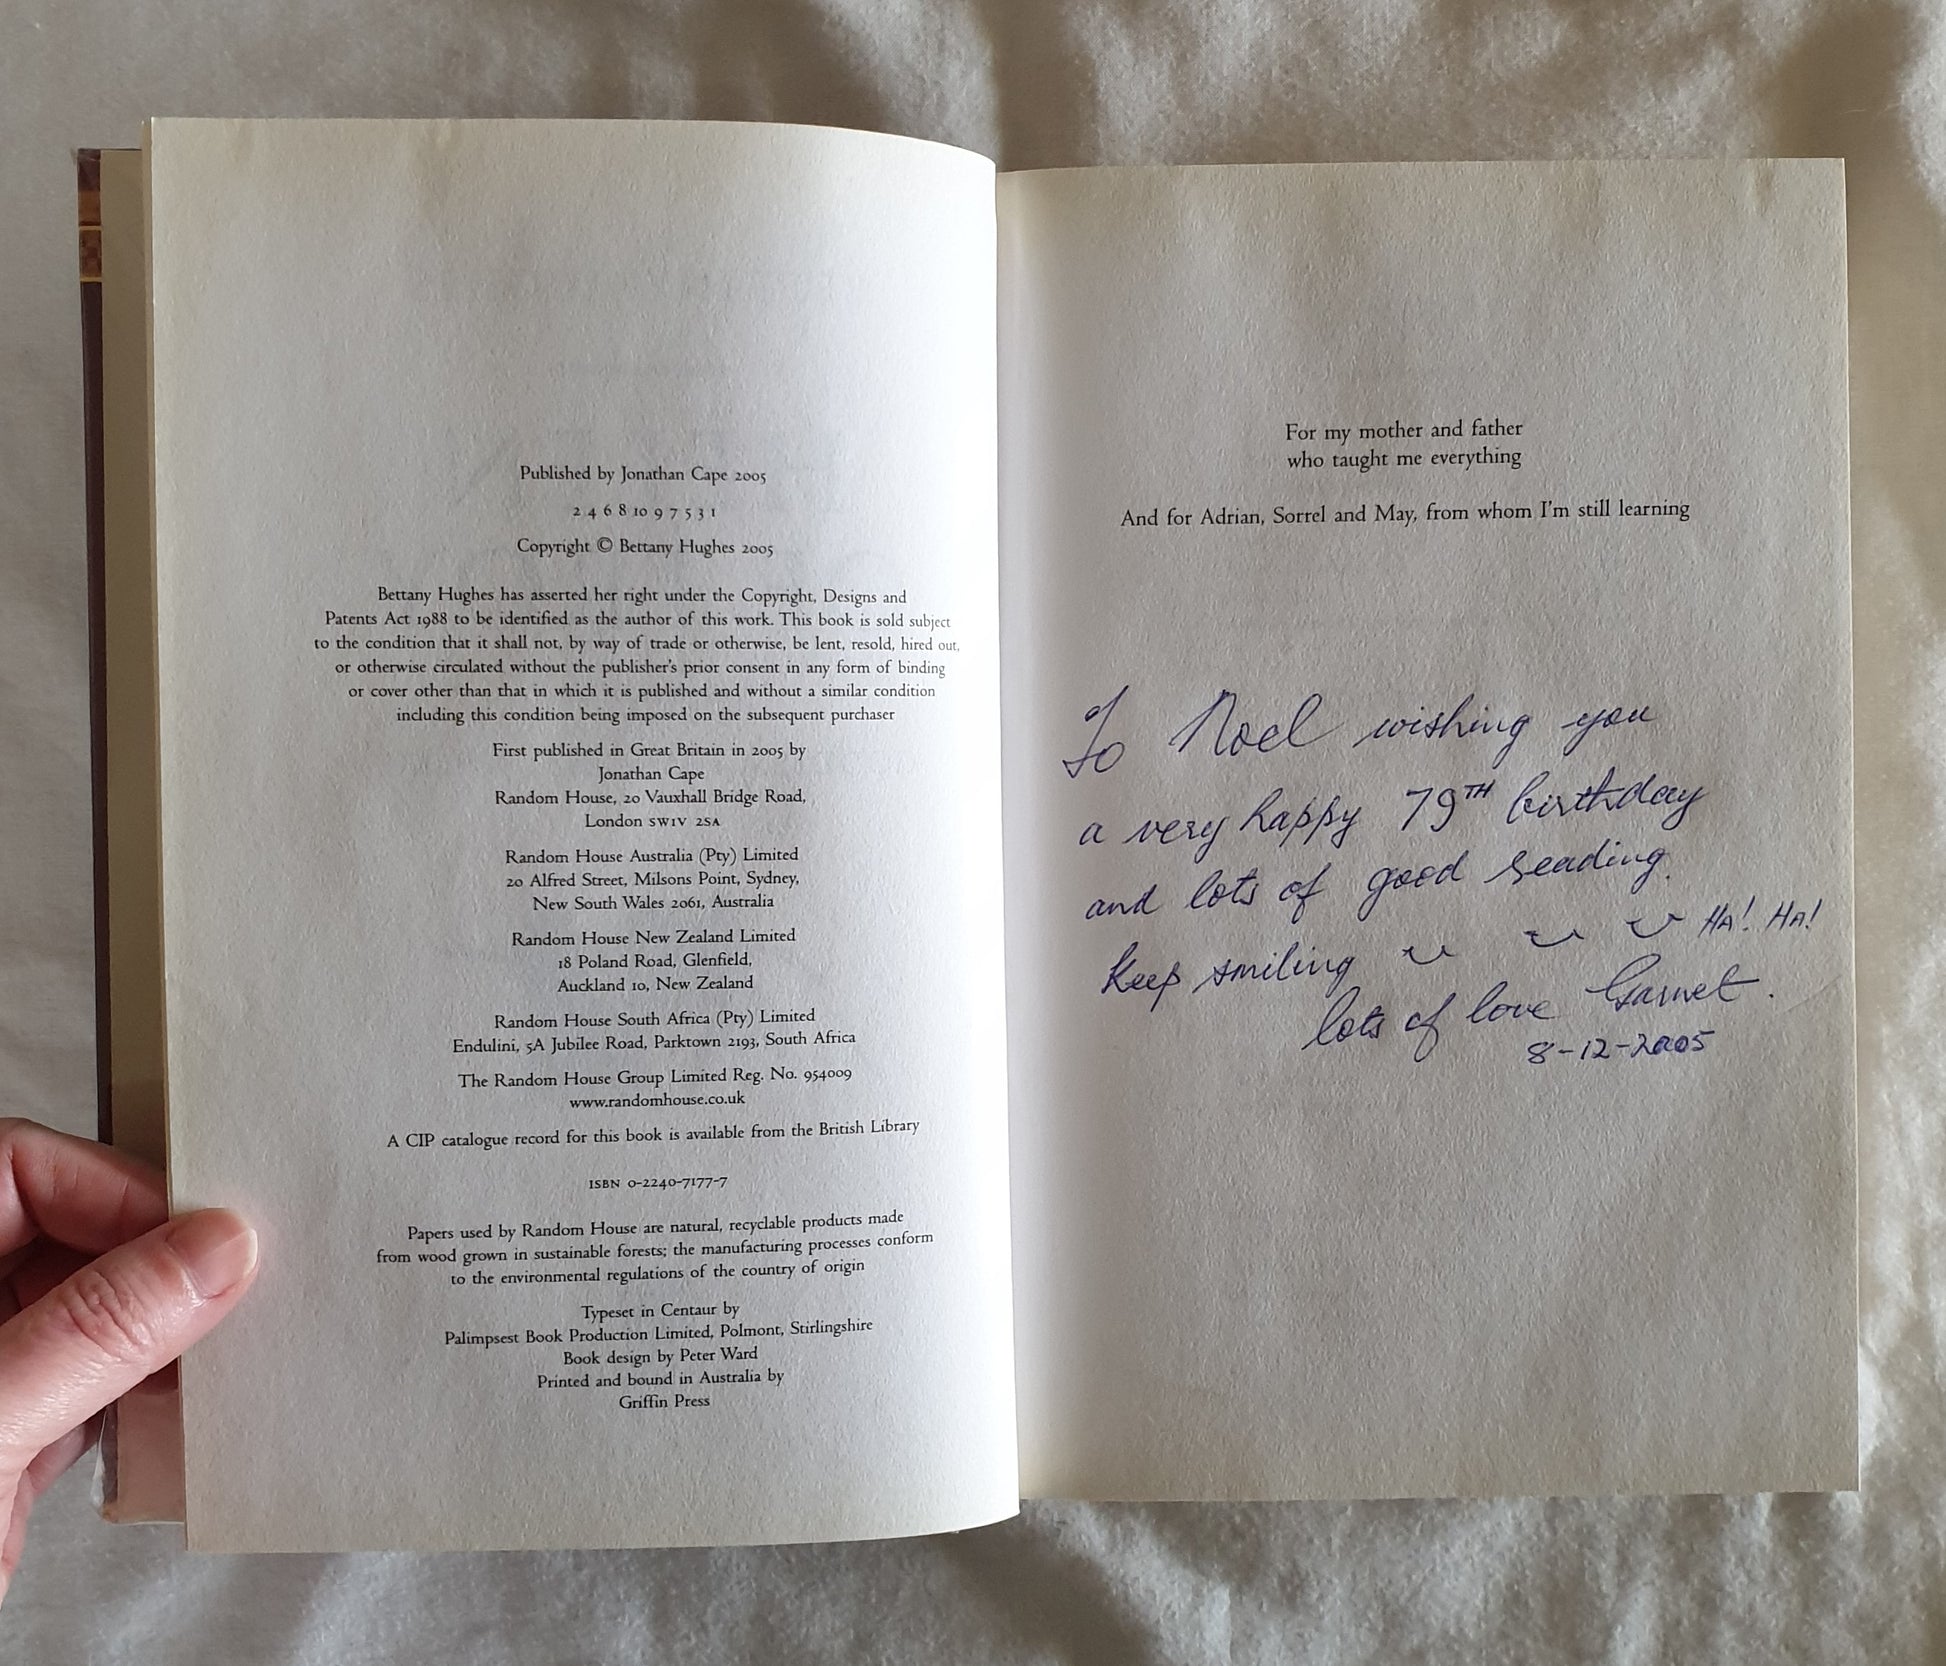 Published by Jonathan Cape 2005
2 4 6 8 10 9 7 5 3 1
Copyright © Bettany Hughes 2005
Bettany Hughes has asserted her right under the Copyright, Designs and
Patents Act 1988 to be identified as the author of this work. This book is sold subject
to the condition that it shall not, by way of trade or otherwise, be lent, resold, hired out,
or otherwise circulated without the publisher's prior consent in any form of binding
or cover other than that in which it is published and without a similar condition
including this condition being imposed on the subsequent purchaser
First published in Great Britain in 2005 by
Jonathan Cape
Random House, 20 Vauxhall Bridge Road,
London SW1V 2SA
Random House Australia (Pty) Limited
20 Alfred Street, Milsons Point, Sydney,
New South Wales 2061, Australia
Random House New Zealand Limited
18 Poland Road, Glenfield,
Auckland 10, New Zealand
Random House South Africa (Pty) Limited
Endulini, 5A Jubilee Road, Parktown 2193, South Africa
The Random House Group Limited Reg. No. 954009
www.randomhouse.co.uk
A CIP catalogue record for this book is available from the British Library
ISBN 0-2240-7177-7
Papers used by Random House are natural, recyclable products made
from wood grown in sustainable forests; the manufacturing processes conform
to the environmental regulations of the country of origin
Typeset in Centaur by
Palimpsest Book Production Limited, Polmont, Stirlingshire
Book design by Peter Ward
Printed and bound in Australia by
Griffin Press
For my mother and father
who taught me everything
And for Adrian, Sorrel and May, from whom I'm still learning
To Noel wishing you
a very happy 79TH birthday
and lots of good reading.
Keep smiling HA! HA!
lots of love Garnet.
8-12-2005